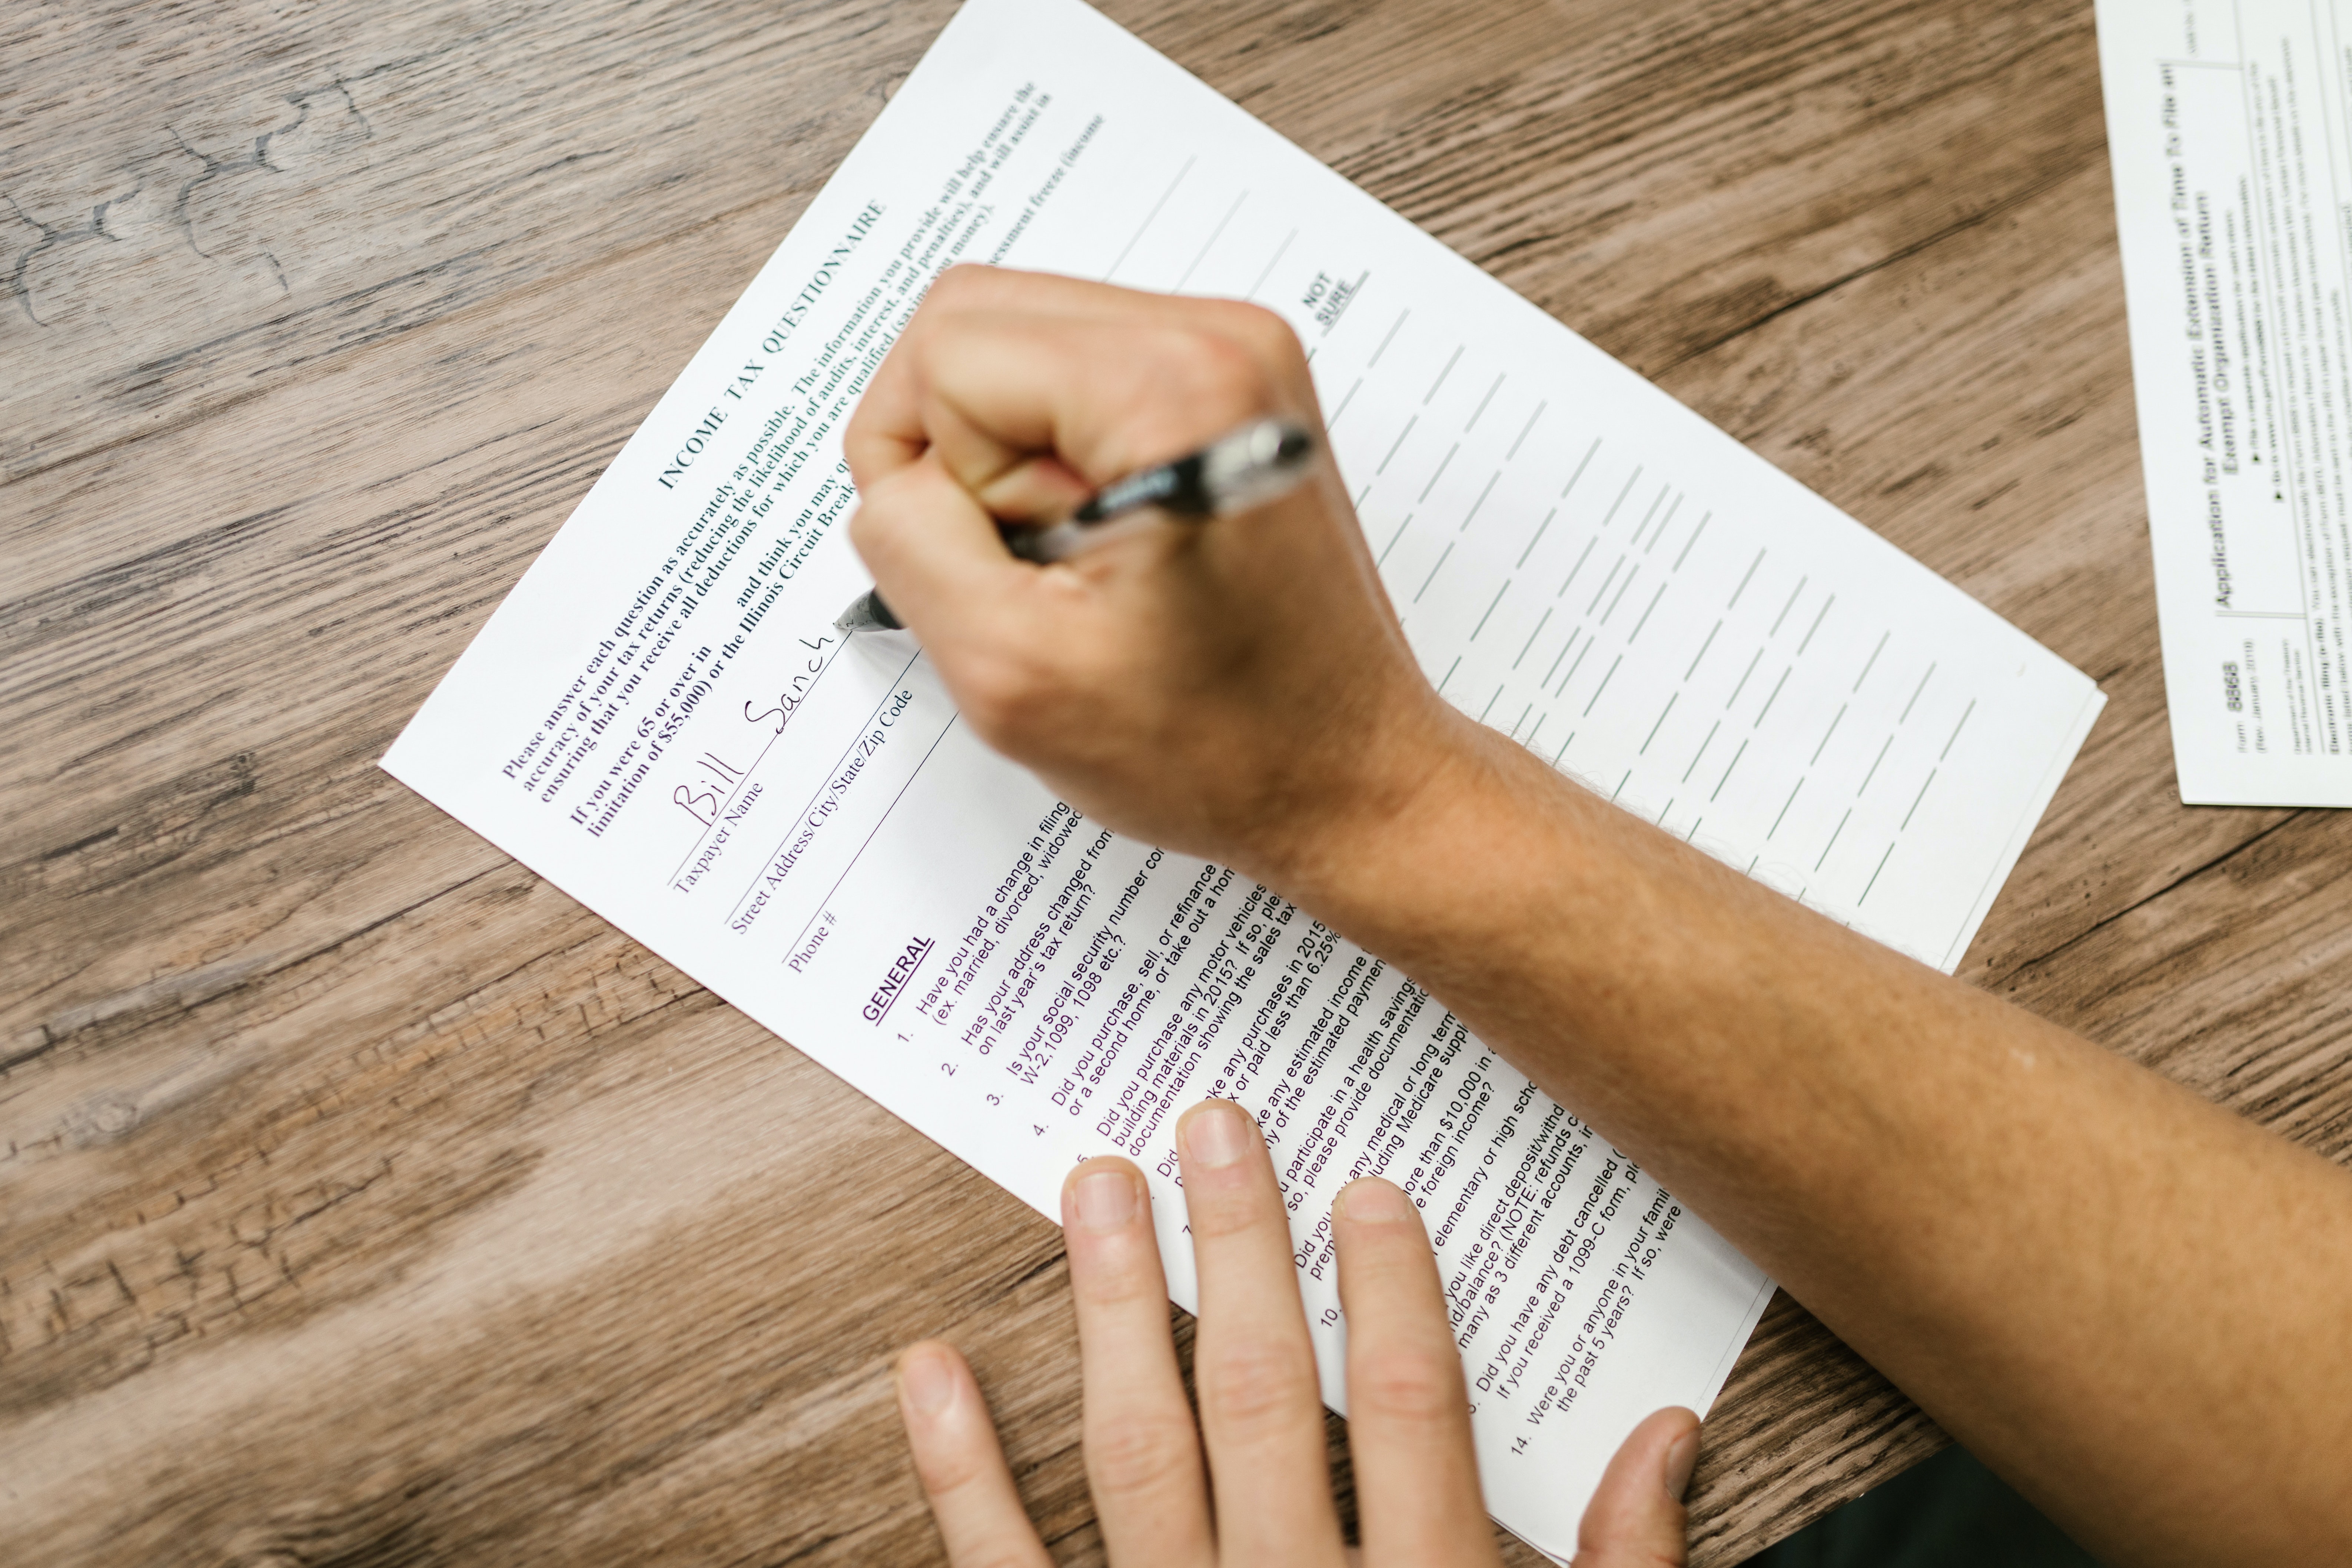 INCOME TAX QUESTIONNAIRE
Please answer each question as accurately as possible. The information you provide will help ensure the
accuracy of your tax returns (reducing the likelihood of audits, interest, and penalties), and will assist in
ensuring that you receive all deductions for which you are qualified (saving you money).
If you were 65 or over in and think you may qu essment freeze (income
limitation of $55,000) or the Illinois Circuit Break
Bill Sanch
Taxpayer Name
Street Address/City/State/Zip Code
Phone #
NOT
SURE
GENERAL
1. Have you had a change in filing
(ex. married, divorced, widowed
2. Has your address changed from
on last year's tax return?
3. Is your social security number cor
W-2, 1099, 1098 etc.?
4. Did you purchase, sell, or refinance
or a second home, or take out a hom
5. Did you purchase any motor vehicles
building materials in 2015? If so, plea
documentation showing the sales tax
Did ke any purchases in 2015
x or paid less than 6.25%
7 ke any estimated income
ny of the estimated paymen
u participate in a health savings
so, please provide documentatio
Did you any medical or long term
prem luding Medicare suppl
10. ore than $10,000 in a
e foreign income?
elementary or high scho
you like direct deposit/withd
nd/balance? (NOTE: refunds c
many as 3 different accounts, i
3. Did you have any debt cancelled (
If you received a 1099-C form, ple
14. Were you or anyone in your famil
the past 5 years? If so, were
Form 8868
(Rev. January 2019)
Application for Automatic Extension of Time To File an
Exempt Organization Return